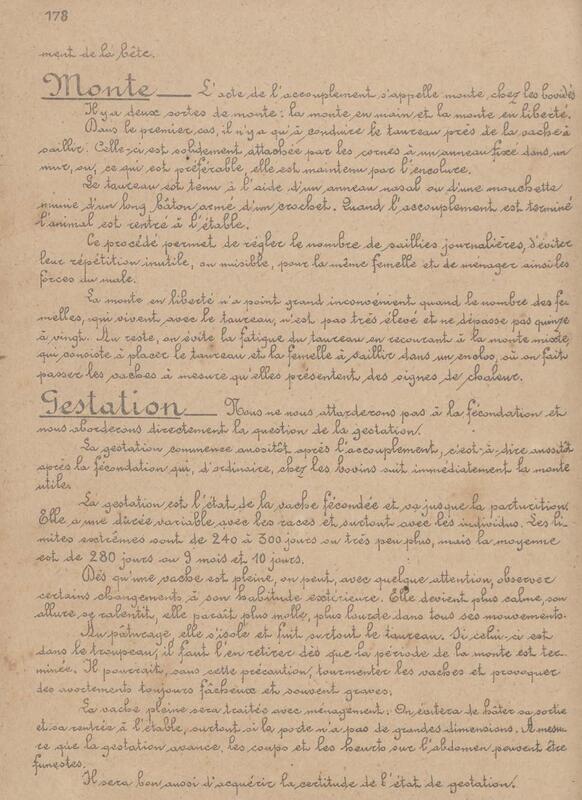 178
ment de la bête.
Monte — L'acte de l'accouplement s'appelle monte, chez les bovidés
Il y a deux sortes de monte : la monte en main et la monte en liberté.
Dans le premier cas, il n'y a qu'à conduire le taureau près de la vache à
saillir. Celle-ci est solidement attachée par les cornes à un anneau fixé dans un
mur, ou, ce qui est préférable, elle est maintenue par l'encolure.
Le taureau est tenu à l'aide d'un anneau nasal ou d'une mouchette
munie d'un long bâton armé d'un crochet. Quand l'accouplement est terminé
l'animal est rentré à l'étable.
Ce procédé permet de régler le nombre de saillies journalières, d'éviter
leur répétition inutile, ou nuisible, pour la même femelle et de ménager ainsi les
forces du male.
La monte en liberté n'a point grand inconvénient quand le nombre des fe-
melles, qui vivent avec le taureau, n'est pas très élevé et ne dépasse pas quinze
à vingt. Au reste, on évite la fatigue du taureau en recourant à la monte mixte,
qui consiste à placer le taureau et la femelle à saillir dans un enclos, où on fait
passer les vaches à mesure qu'elles présentent des signes de chaleur.
Gestation — Nous ne nous attarderons pas à la fécondation et
nous aborderons directement la question de la gestation.
La gestation commence aussitôt après l'accouplement, c'est-à-dire aussitôt
après la fécondation qui, d'ordinaire, chez les bovins suit immédiatement la monte
utile.
La gestation est l'état de la vache fécondée et va jusque la parturition.
Elle a une durée variable avec les races et surtout avec les individus. Les li-
mites extrêmes sont de 240 à 300 jours ou très peu plus, mais la moyenne
est de 280 jours ou 9 mois et 10 jours.
Dès qu'une vache est pleine, on peut, avec quelque attention, observer
certains changements à son habitude extérieure. Elle devient plus calme, son
allure se ralentit, elle parait plus molle, plus lourde dans tous ses mouvements.
Au pâturage, elle s'isole et fuit surtout le taureau. Si celui-ci est
dans le troupeau, il faut l'en retirer dès que la période de la monte est ter-
minée. Il pourrait, sans cette précaution, tourmenter les vaches et provoquer
des avortements toujours fâcheux et souvent graves.
La vache pleine sera traitée avec ménagement. On évitera de hâter sa sortie
et sa rentrée à l'étable, surtout si la porte n'a pas de grandes dimensions. A mesu-
re que la gestation avance, les coups et les heurts sur l'abdomen peuvent être
funestes.
Il sera bon aussi d'acquérir la certitude de l'état de gestation.